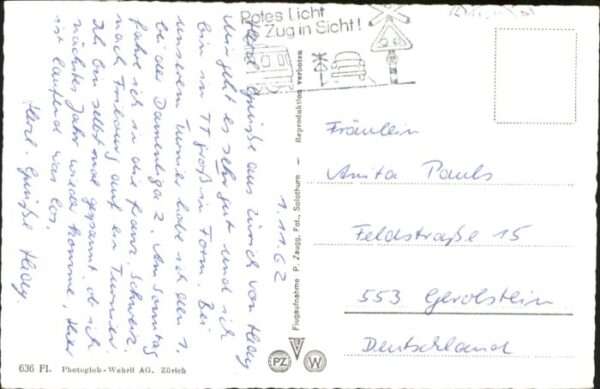 Rotes Licht
Zug in Sicht!
Herzl. Grüße aus Zürich von Hedy
Mir geht es sehr gut und ich
bin in TT groß in Form. Bei
unserem Turnier habe ich den 1.
bei der Damenliga 2. Am Sonntag
fahre ich in die franz. Schweiz
nach Fribourg auf ein Turnier.
Ich bin selbst mal gespannt ob ich
nächstes Jahr wieder komme, hier
ist laufend was los.
Herzl. Grüße Hedy
1.11.62
Flugaufnahme P. Zaugg, Fot., Solothurn - Reproduktion verboten
Fräulein
Anita Pauls
Feldstraße 15
553 Gerolstein
Deutschland
PZ
W
636 Fl. Photoglob-Wehrli AG, Zürich